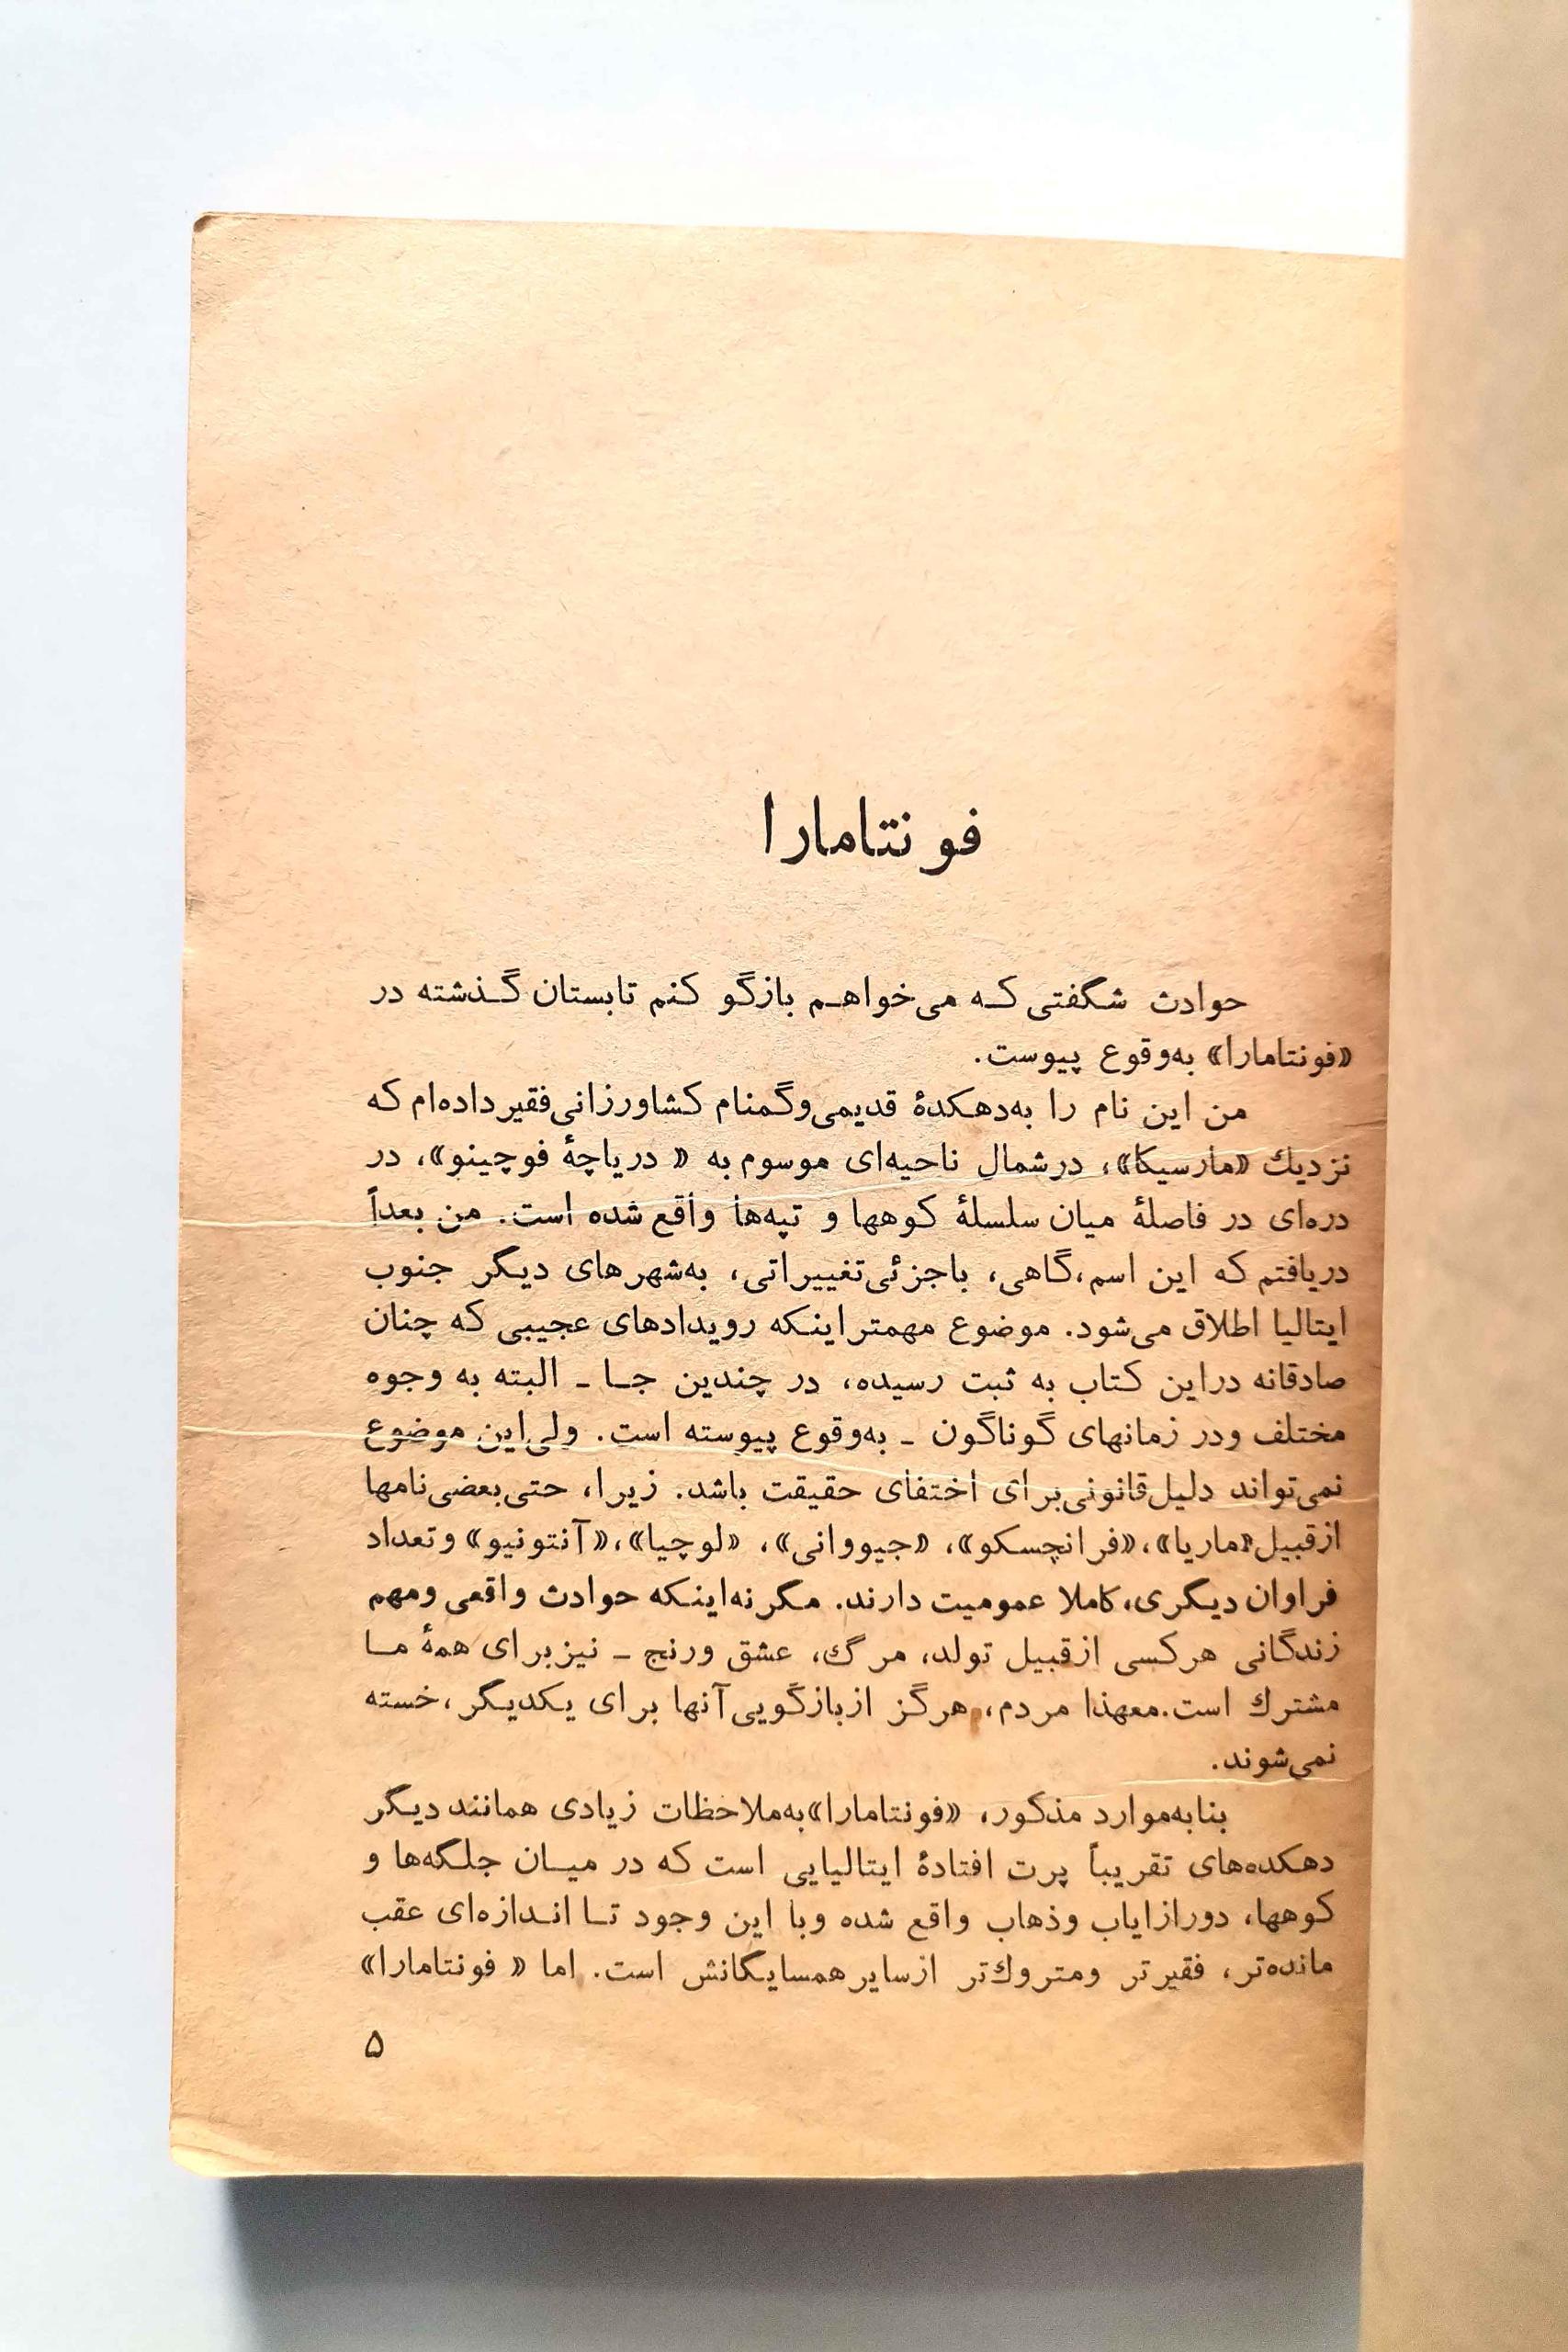 فونتامارا
حوادث شگفتی که می‌خواهم بازگو کنم تابستان گذشته در
«فونتامارا» به‌وقوع پیوست.
من این نام را به‌دهکدهٔ قدیمی‌وگمنام کشاورزانی‌فقیر داده‌ام که
نزدیك «مارسیکا»، درشمال ناحیه‌ای موسوم به « دریاچهٔ فوچینو»، در
دره‌ای در فاصلهٔ میان سلسلهٔ کوهها و تپه‌ها واقع شده است. من بعداً
دریافتم که این اسم،گاهی، باجزئی‌تغییراتی، به‌شهرهای دیگر جنوب
ایتالیا اطلاق می‌شود. موضوع مهمتر اینکه رویدادهای عجیبی که چنان
صادقانه دراین کتاب به ثبت رسیده، در چندین جا - البته به وجوه
مختلف ودر زمانهای گوناگون - به‌وقوع پیوسته است. ولی‌این موضوع
نمی‌تواند دلیل‌قانونی‌برای اختفای حقیقت باشد. زیرا، حتی‌بعضی‌نامها
ازقبیل«ماریا»،«فرانچسکو»، «جیووانی»، «لوچیا»،«آنتونیو» وتعداد
فراوان دیگری، کاملا عمومیت دارند. مگر نه‌اینکه حوادث واقعی ومهم
زندگانی هرکسی ازقبیل تولد، مرگ، عشق ورنج - نیزبرای همهٔ ما
مشترك است.معهذا مردم، هرگز ازبازگویی‌آنها برای یکدیگر،خسته
نمی‌شوند.
بنابه‌موارد مذکور، «فونتامارا»به‌ملاحظات زیادی همانند دیگر
دهکده‌های تقریباً پرت افتادهٔ ایتالیایی است که در میان جلگه‌ها و
کوهها، دورازایاب وذهاب واقع شده وبا این وجود تا اندازه‌ای عقب
مانده‌تر، فقیرتر ومتروك‌تر ازسایر همسایگانش است. اما « فونتامارا»
۵